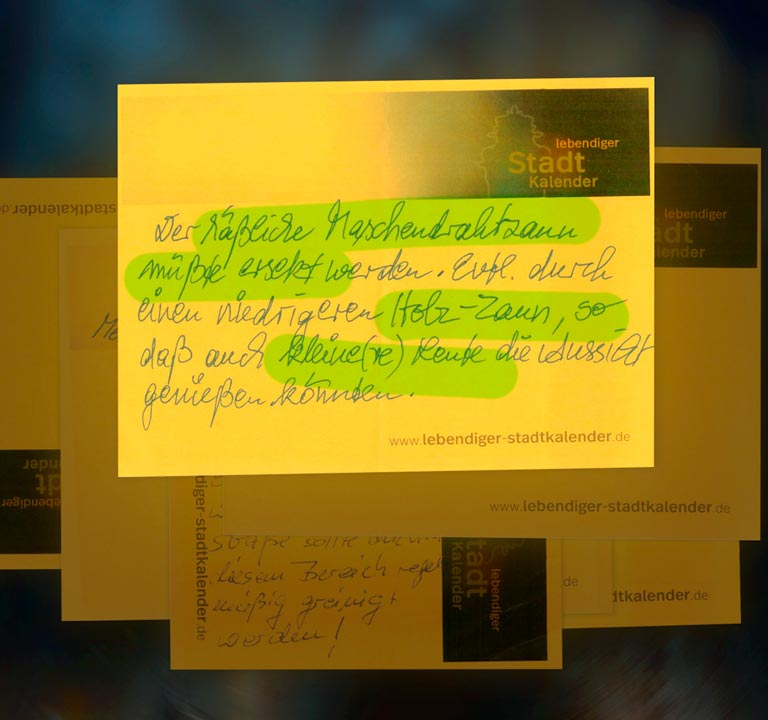 lebendiger
Stadt
Kalender
Der häßliche Maschendrahtzaun
müßte ersetzt werden. Evtl. durch
einen niedrigeren Holz-Zaun, so
daß auch kleine(re) Leute die Aussicht
genießen könnten.
www.lebendiger-stadtkalender.de
stadtkalender.de
lebendiger
Stadt
Kalender
www.lebendiger-stadtkalender.de
lebendiger
Stadt
Kalender
diger-stadtkalender.de
Straße sollte auch
diesem Bereich regel
mäßig greinigt
werden!
Stadt
lebendiger
de
dtkalender.de